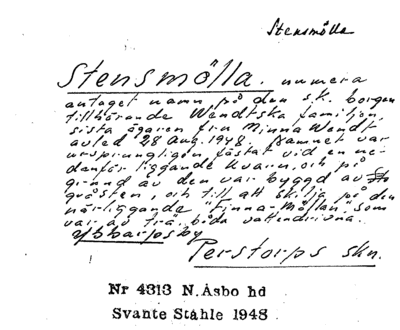 Stensmölla
Stensmölla. numera
antaget namn på den s.k. borgen
tillhörande Wendtska familjen,
sista ägaren fru Minna Wendt
avled 28 Aug. 1948. Namnet var
ursprungligen fästat vid en ne-
danför liggande kvarn, och på
grund av den var byggd av
gråsten, och till att skilja på den
närliggande "Finna-Möllan" som
var av trä. båda vattendrivna.
Ybbarpsby
Perstorps skn.
Nr 4313 N. Åsbo hd
Svante Ståhle 1948